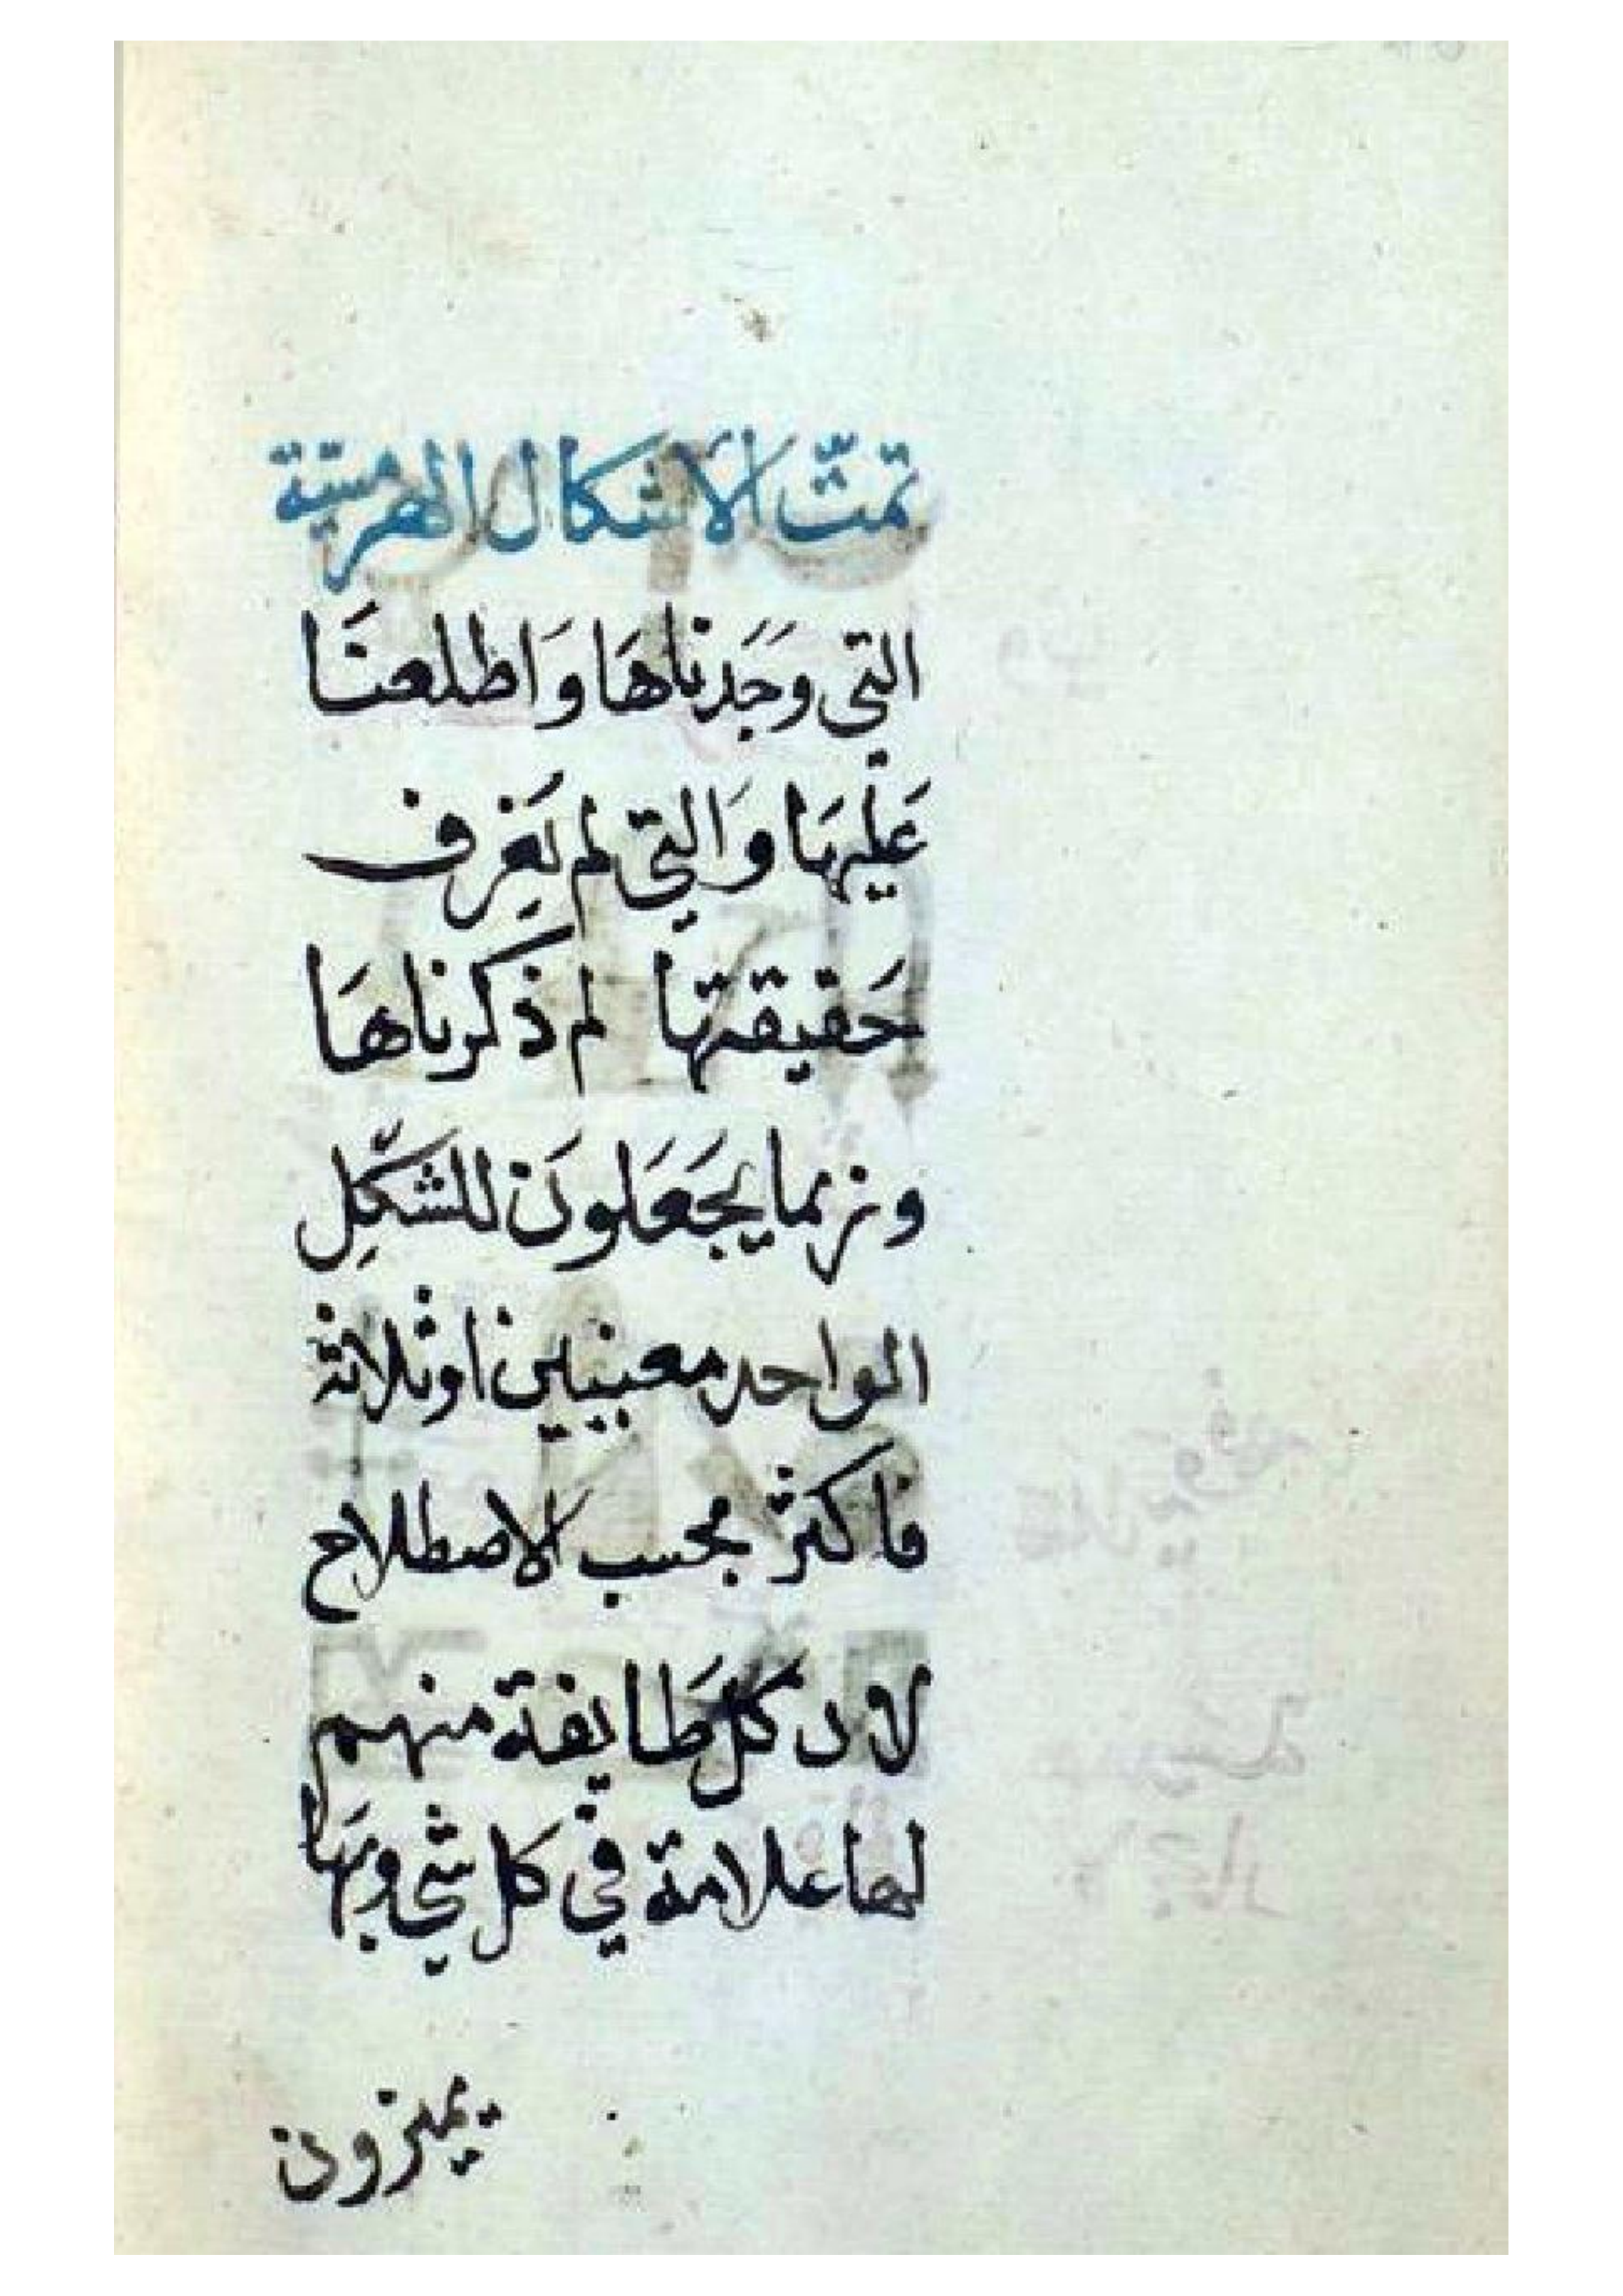 تمّت الأشكال الهرمسيّة
التي وَجَدناهَا وَاطلعنَا
عَليهَا وَالتي لم يُعرف
حَقيقتها لم ذكرناهَا
وربما يجَعَلونَ للشكِل
الواحد معنيين اوثلاثة
فاكثر بحسب الاصطلاح
لان كل طَايفة منهم
لها علامة في كل شي وبهَا
يميزون